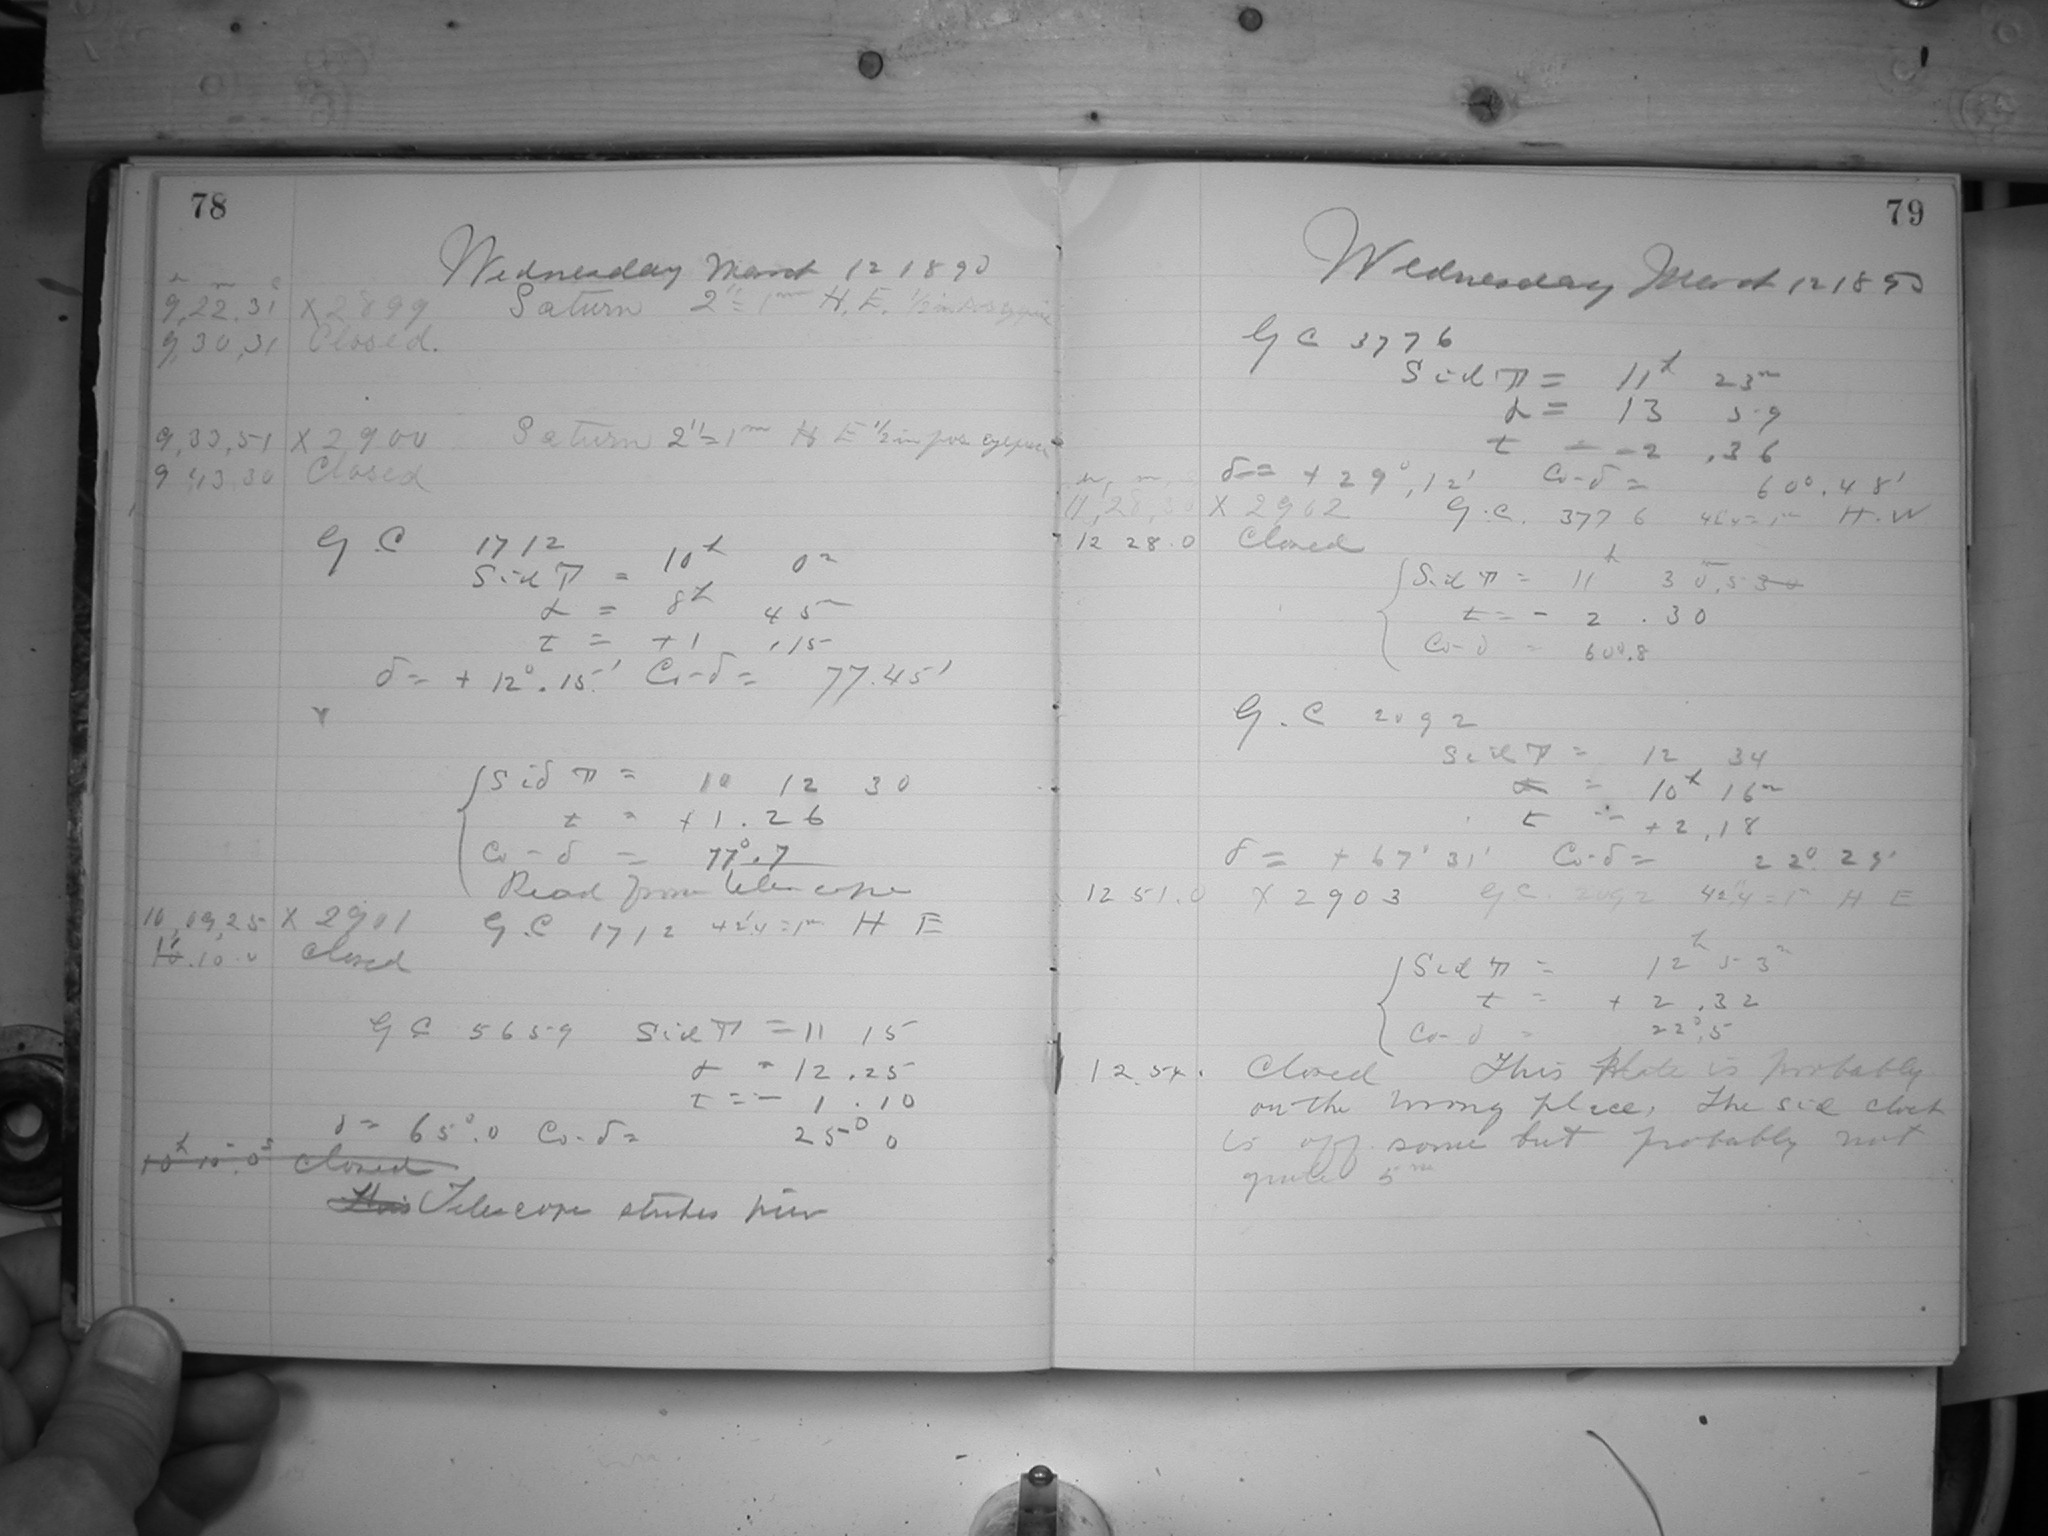 78
Wednesday March 12 1890
h m s
9,22.31 X2899 Saturn 2"=1mm H.E. 1/2 in pos eyepiece
9,30,31 Closed.
9,33,51 X2900 Saturn 2"=1m H E 1/2 in pos eyepiece
9 43.30 Closed
G.C 1712
Sid T = 10h 0m
α = 8h 45m
t = +1 .15
δ = + 12°.15' Co-δ = 77.45'
Sid T = 10 12 30
t = +1.26
Co-δ = 77°.7
Read from telescope
10,09,25 X2901 G.C 1712 42".4=1m H E
10.0 Closed
GC 5659 Sid T = 11 15
α = 12.25
t = - 1.10
δ = 65°.0 Co-δ = 25° 0
10h 10m.0s closed
This Telescope strikes pier
79
Wednesday March 12 1890
GC 3776
Sid T = 11h 23m
α = 13 59
t = -2 .36
δ = + 29°,12' Co-δ = 60°.48'
X2902 G.C. 3776 H.W
12 28.0 Closed
Sid T = 11h 30m.5 30
t = - 2 .30
Co-δ = 60°.8
G.C 2092
Sid T = 12 34
α = 10h 16m
t = +2,18
δ = + 67° 31' Co-δ = 22° 29'
12 51.0 X2903 GC. 2092 42".4=1m H E
Sid T = 12h 53m
t = + 2 .32
Co-δ = 22°.5
12.54. Closed This plate is probably
on the wrong place, The sid clock
is off some but probably not
quite 5m